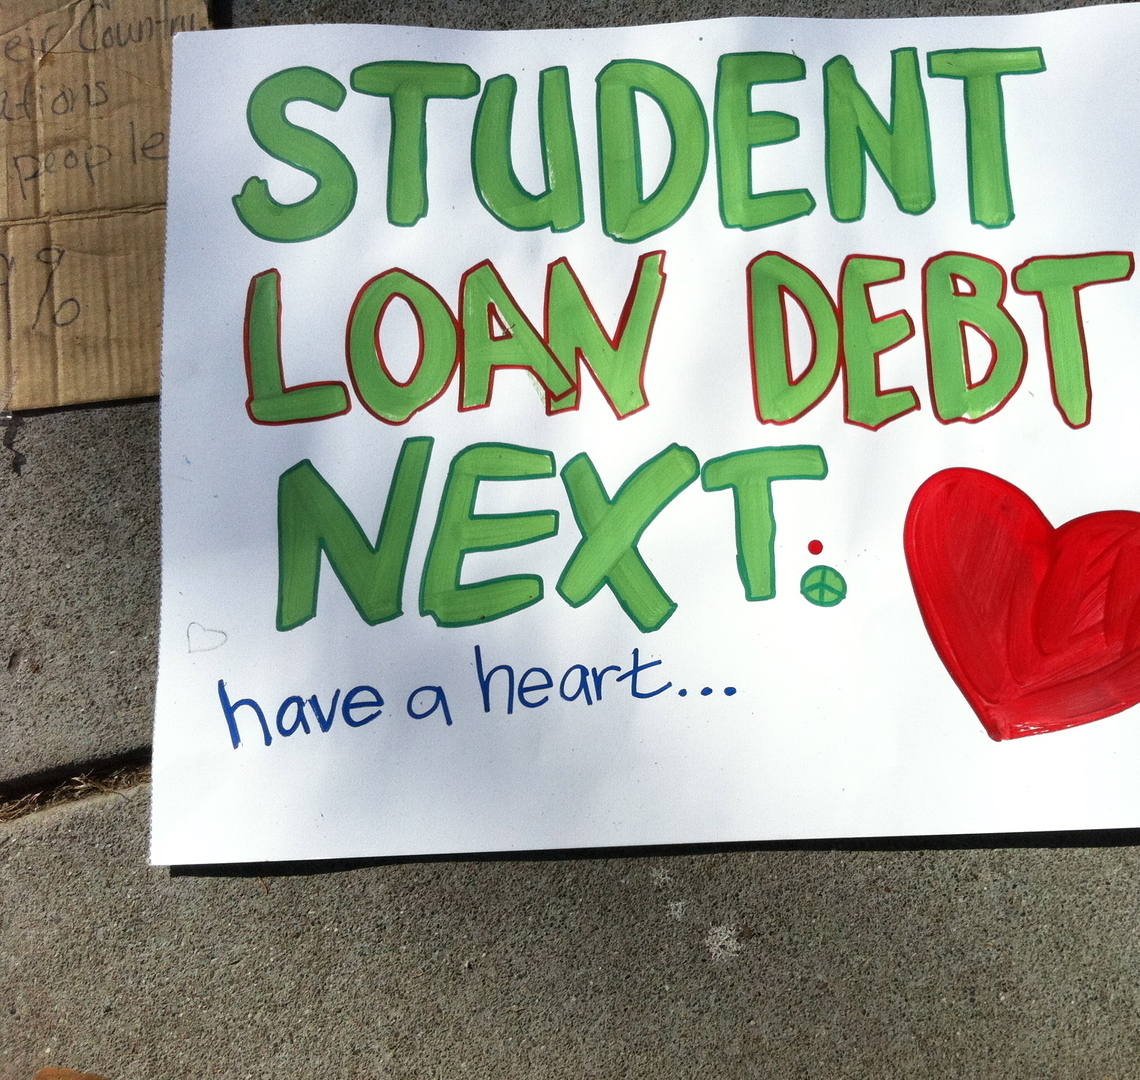 Country
ations
people
%
STUDENT
LOAN DEBT
NEXT.
have a heart...